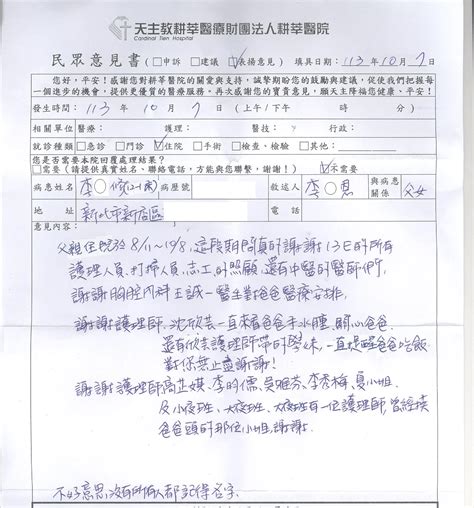 天主教耕莘醫療財團法人耕莘醫院
Cardinal Tien Hospital
民眾意見書(□申訴 □建議 ☑表揚意見) 填具日期:113年10月7日
您好,平安!感謝您對耕莘醫院的關愛與支持,誠摯期盼您的鼓勵與建議,促使我們把握每
一個進步的機會,提供更優質的醫療服務。再次感謝您的寶貴意見,願天主降福您健康、平安!
發生時間:113年10月7日(上午/下午 時 分)
相關單位 醫療: 護理: 醫技: 行政:
就診種類 □急診 □門診 ☑住院 □手術 □檢查、檢驗 □其他:
您是否需要本院回覆處理結果?
□需要(請提供真實姓名、聯絡電話,方能與您聯繫,謝謝!) ☑不需要
病患姓名 李○ 病歷號 敘述人 李○恩 與病患關係 父女
地址 新北市新店區
意見內容:
父親住院於8/11~10/8,這段期間真的謝謝13E的所有
護理人員、打掃人員、志工的照顧,還有中醫的醫師們。
謝謝胸腔內科王誠一醫生對爸爸醫療安排。
謝謝護理師,沈欣芸一直來看爸爸手水腫,關心爸爸。
還有欣芸護理師帶的學妹,一直提醒爸爸吃飯
對你無止盡謝謝!
謝謝護理師高芷媄、李昀儒、吳雅芬、李秀梅、夏小姐
及小夜班、大夜班有一位護理師,曾經摸
爸爸頭的那位小姐,謝謝。
不好意思,沒有所有人都記得名字。